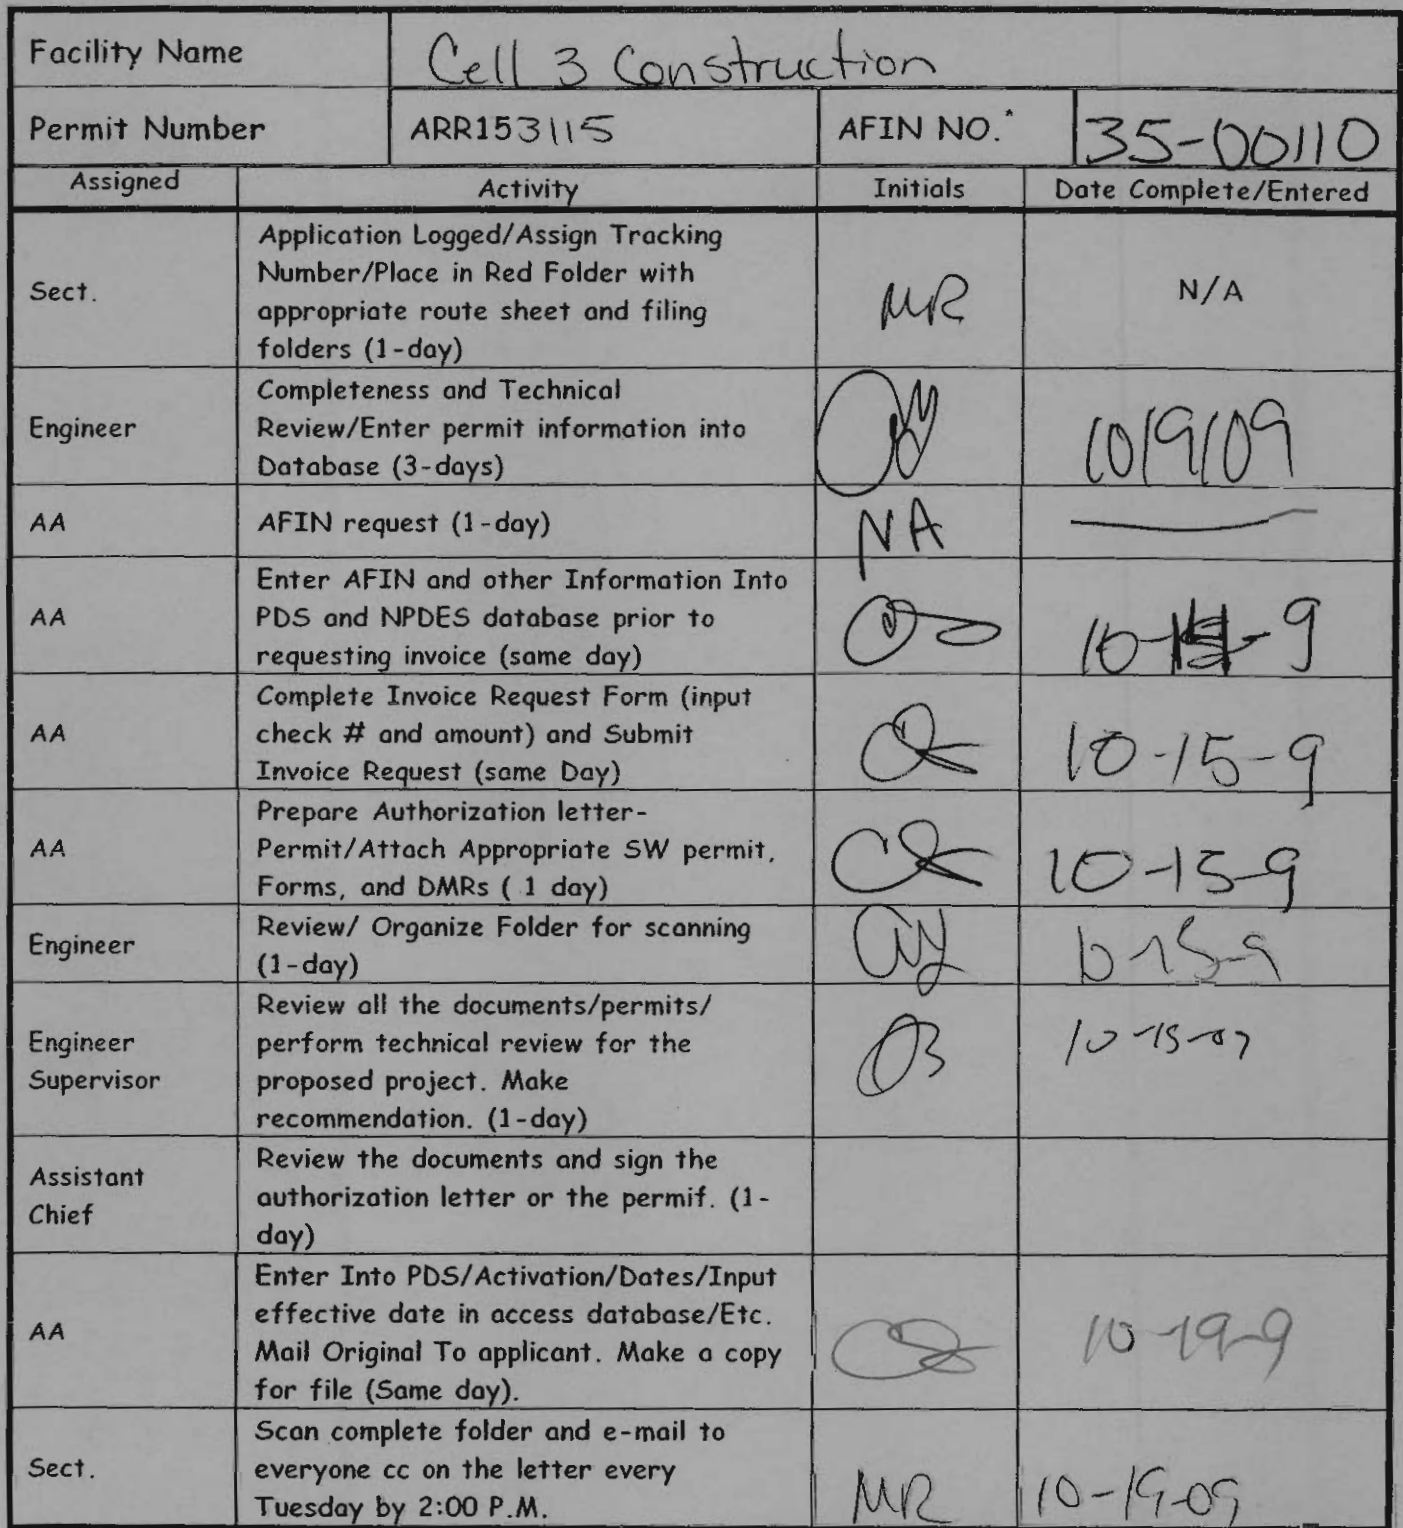 Facility Name Cell 3 Construction
Permit Number ARR153115 AFIN NO.* 35-00110
Assigned Activity Initials Date Complete/Entered
Application Logged/Assign Tracking
Number/Place in Red Folder with
Sect. MR N/A
appropriate route sheet and filing
folders (1-day)
Completeness and Technical
Engineer Review/Enter permit information into 10/9/09
Database (3-days)
AA AFIN request (1-day) NA
Enter AFIN and other Information Into
AA PDS and NPDES database prior to 10- -9
requesting invoice (same day)
Complete Invoice Request Form (input
AA check # and amount) and Submit 10-15-9
Invoice Request (same Day)
Prepare Authorization letter-
AA Permit/Attach Appropriate SW permit, 10-15-9
Forms, and DMRs ( 1 day)
Engineer Review/ Organize Folder for scanning 10-15-9
(1-day)
Review all the documents/permits/
Engineer perform technical review for the
Supervisor proposed project. Make
recommendation. (1-day)
Assistant Review the documents and sign the
Chief authorization letter or the permit. (1-
day)
Enter Into PDS/Activation/Dates/Input
effective date in access database/Etc.
AA 10-19-9
Mail Original To applicant. Make a copy
for file (Same day).
Scan complete folder and e-mail to
Sect. everyone cc on the letter every MR 10-19-09
Tuesday by 2:00 P.M.